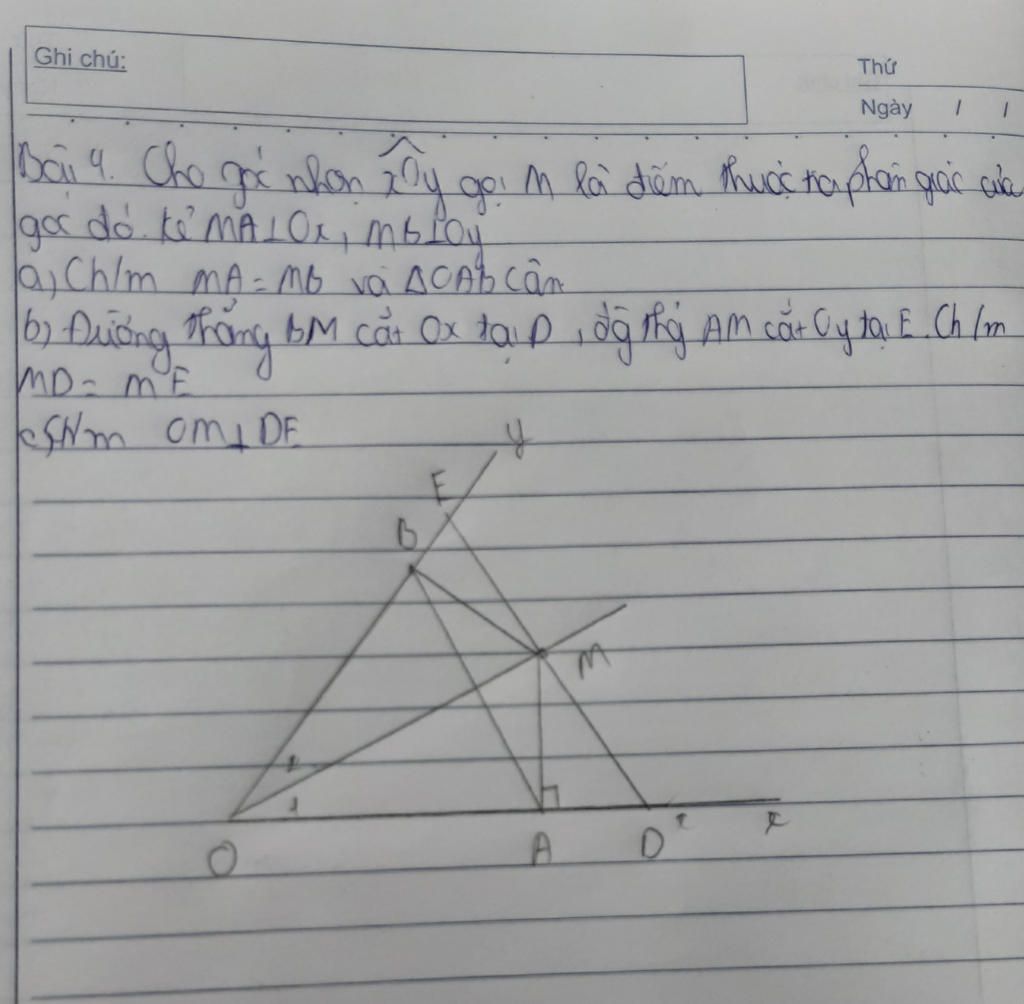 Ghi chú:
Thứ
Ngày / /
Bài 4. Cho góc nhọn xOy gọi M là điểm thuộc tia phân giác của
góc đó. Kẻ MA⊥Ox, MB⊥Oy
a, Ch/m MA = MB và ΔOAB cân
b) Đường thẳng BM cắt Ox tại D, đg thg AM cắt Oy tại E. Ch/m
MD = ME
c, Ch/m OM⊥DE
y
E
B
M
2
1
O
A
D
x